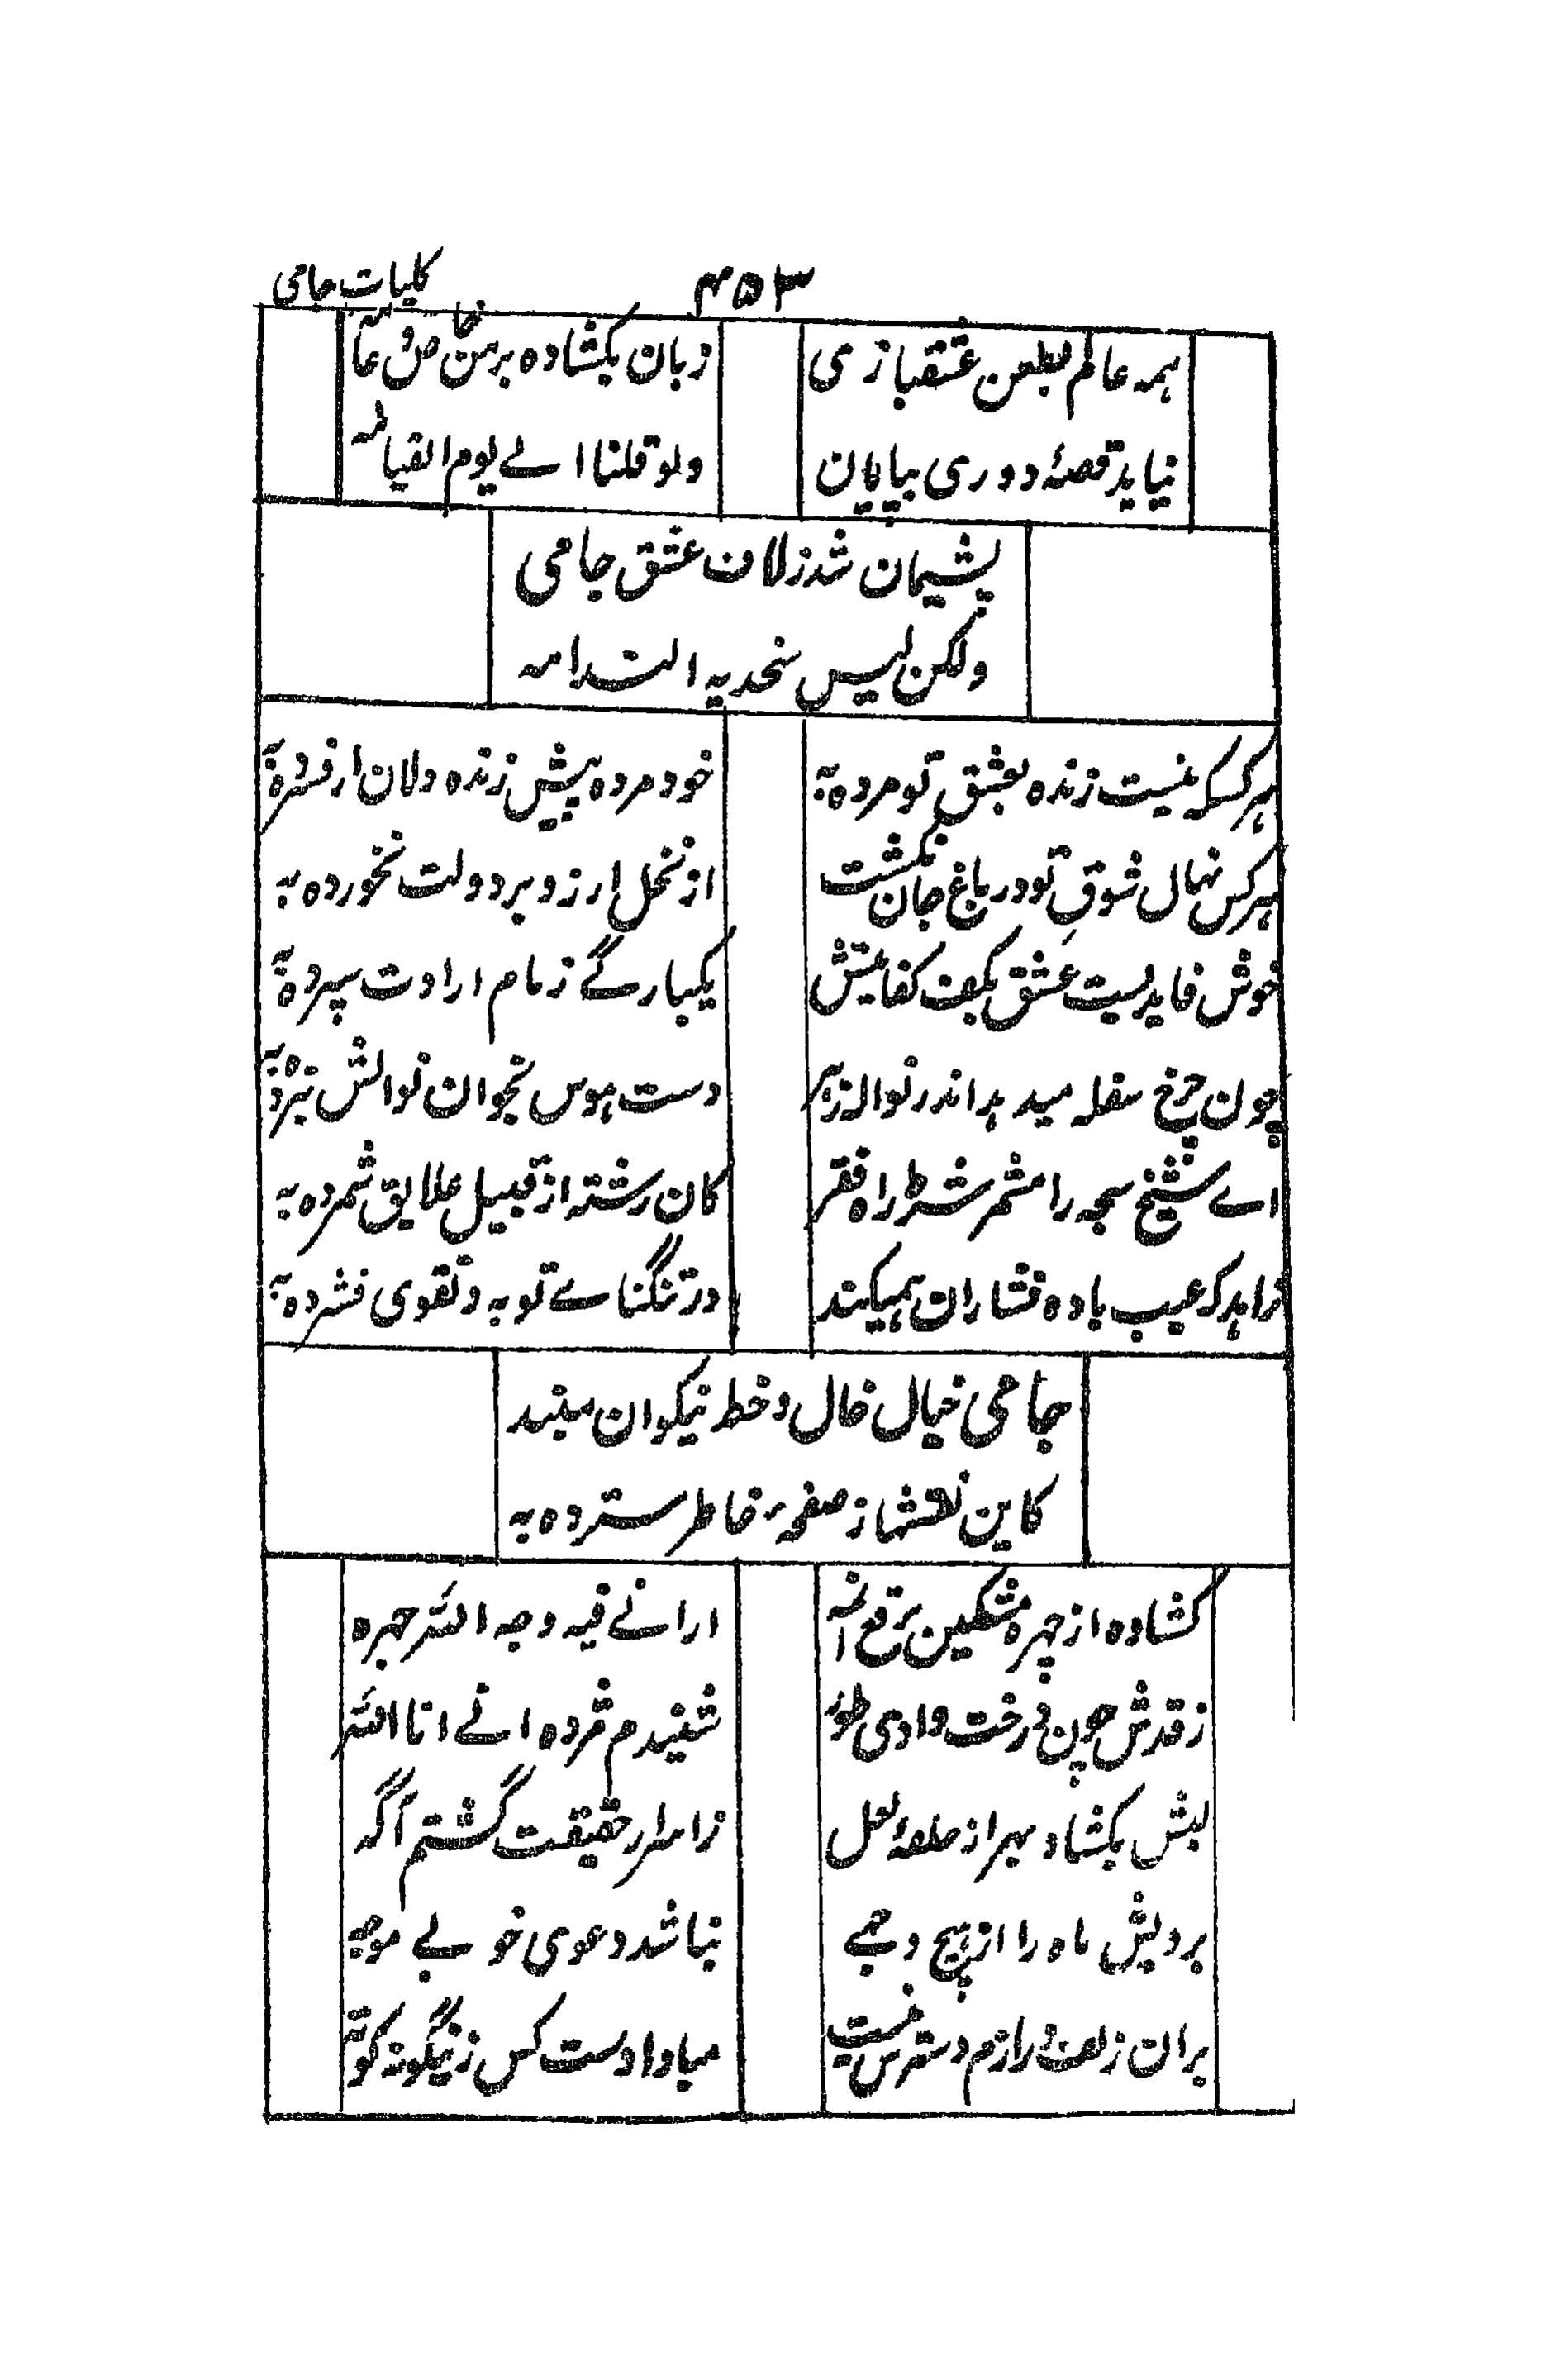 کلیات جامی
۴۵۳
همه عالم بطعن عشقبازی
زبان بکشاده بر من خاص و عامه
نیاید قصهٔ دوری بپایان
ولو قلنا الے یوم القیامه
پشیمان شد ز لاف عشق جامی
ولکن لیس تحدیه الندامه
هر کسکه نیست زنده بعشق تو مرده به
خود مرده پیش زنده دلان از فسرده به
هر کس نهال شوق تو در باغ جان نکشت
از نخل ارزو بر دولت نخورده به
خوش فایدیست عشق بکف کفایتش
یکبارگے زمام ارادت سپرده به
چون چرخ سفله میدهد اندر نواله زهر
دست هوس بخوان نوالش نبرده به
اے شیخ سبحه را مشمر شرط راه فقر
کان رشته از قبیل علایق شمرده به
زاهد که عیب باده فشاران همیکند
در تنگناے توبه و تقوی فشرده به
جامی خیال خال و خط نیکوان مبند
کاین نقشها ز صفحهٔ خاطر سترده به
کشاده از چهره مشکین برقع انمه
ارانے فیه وجه الله جهره
ز قدش چون درخت وادی طور
شنیدم مژده انے انا الله
لبش بکشاد بهر از حلقهٔ لعل
ز اسرار حقیقت گشتم آگه
برویش ماه را از هیچ وجهے
نباشد دعوی خوبے موجه
بران زلف درازم دسترس نیست
مبادا دست کس زینگونه کوته